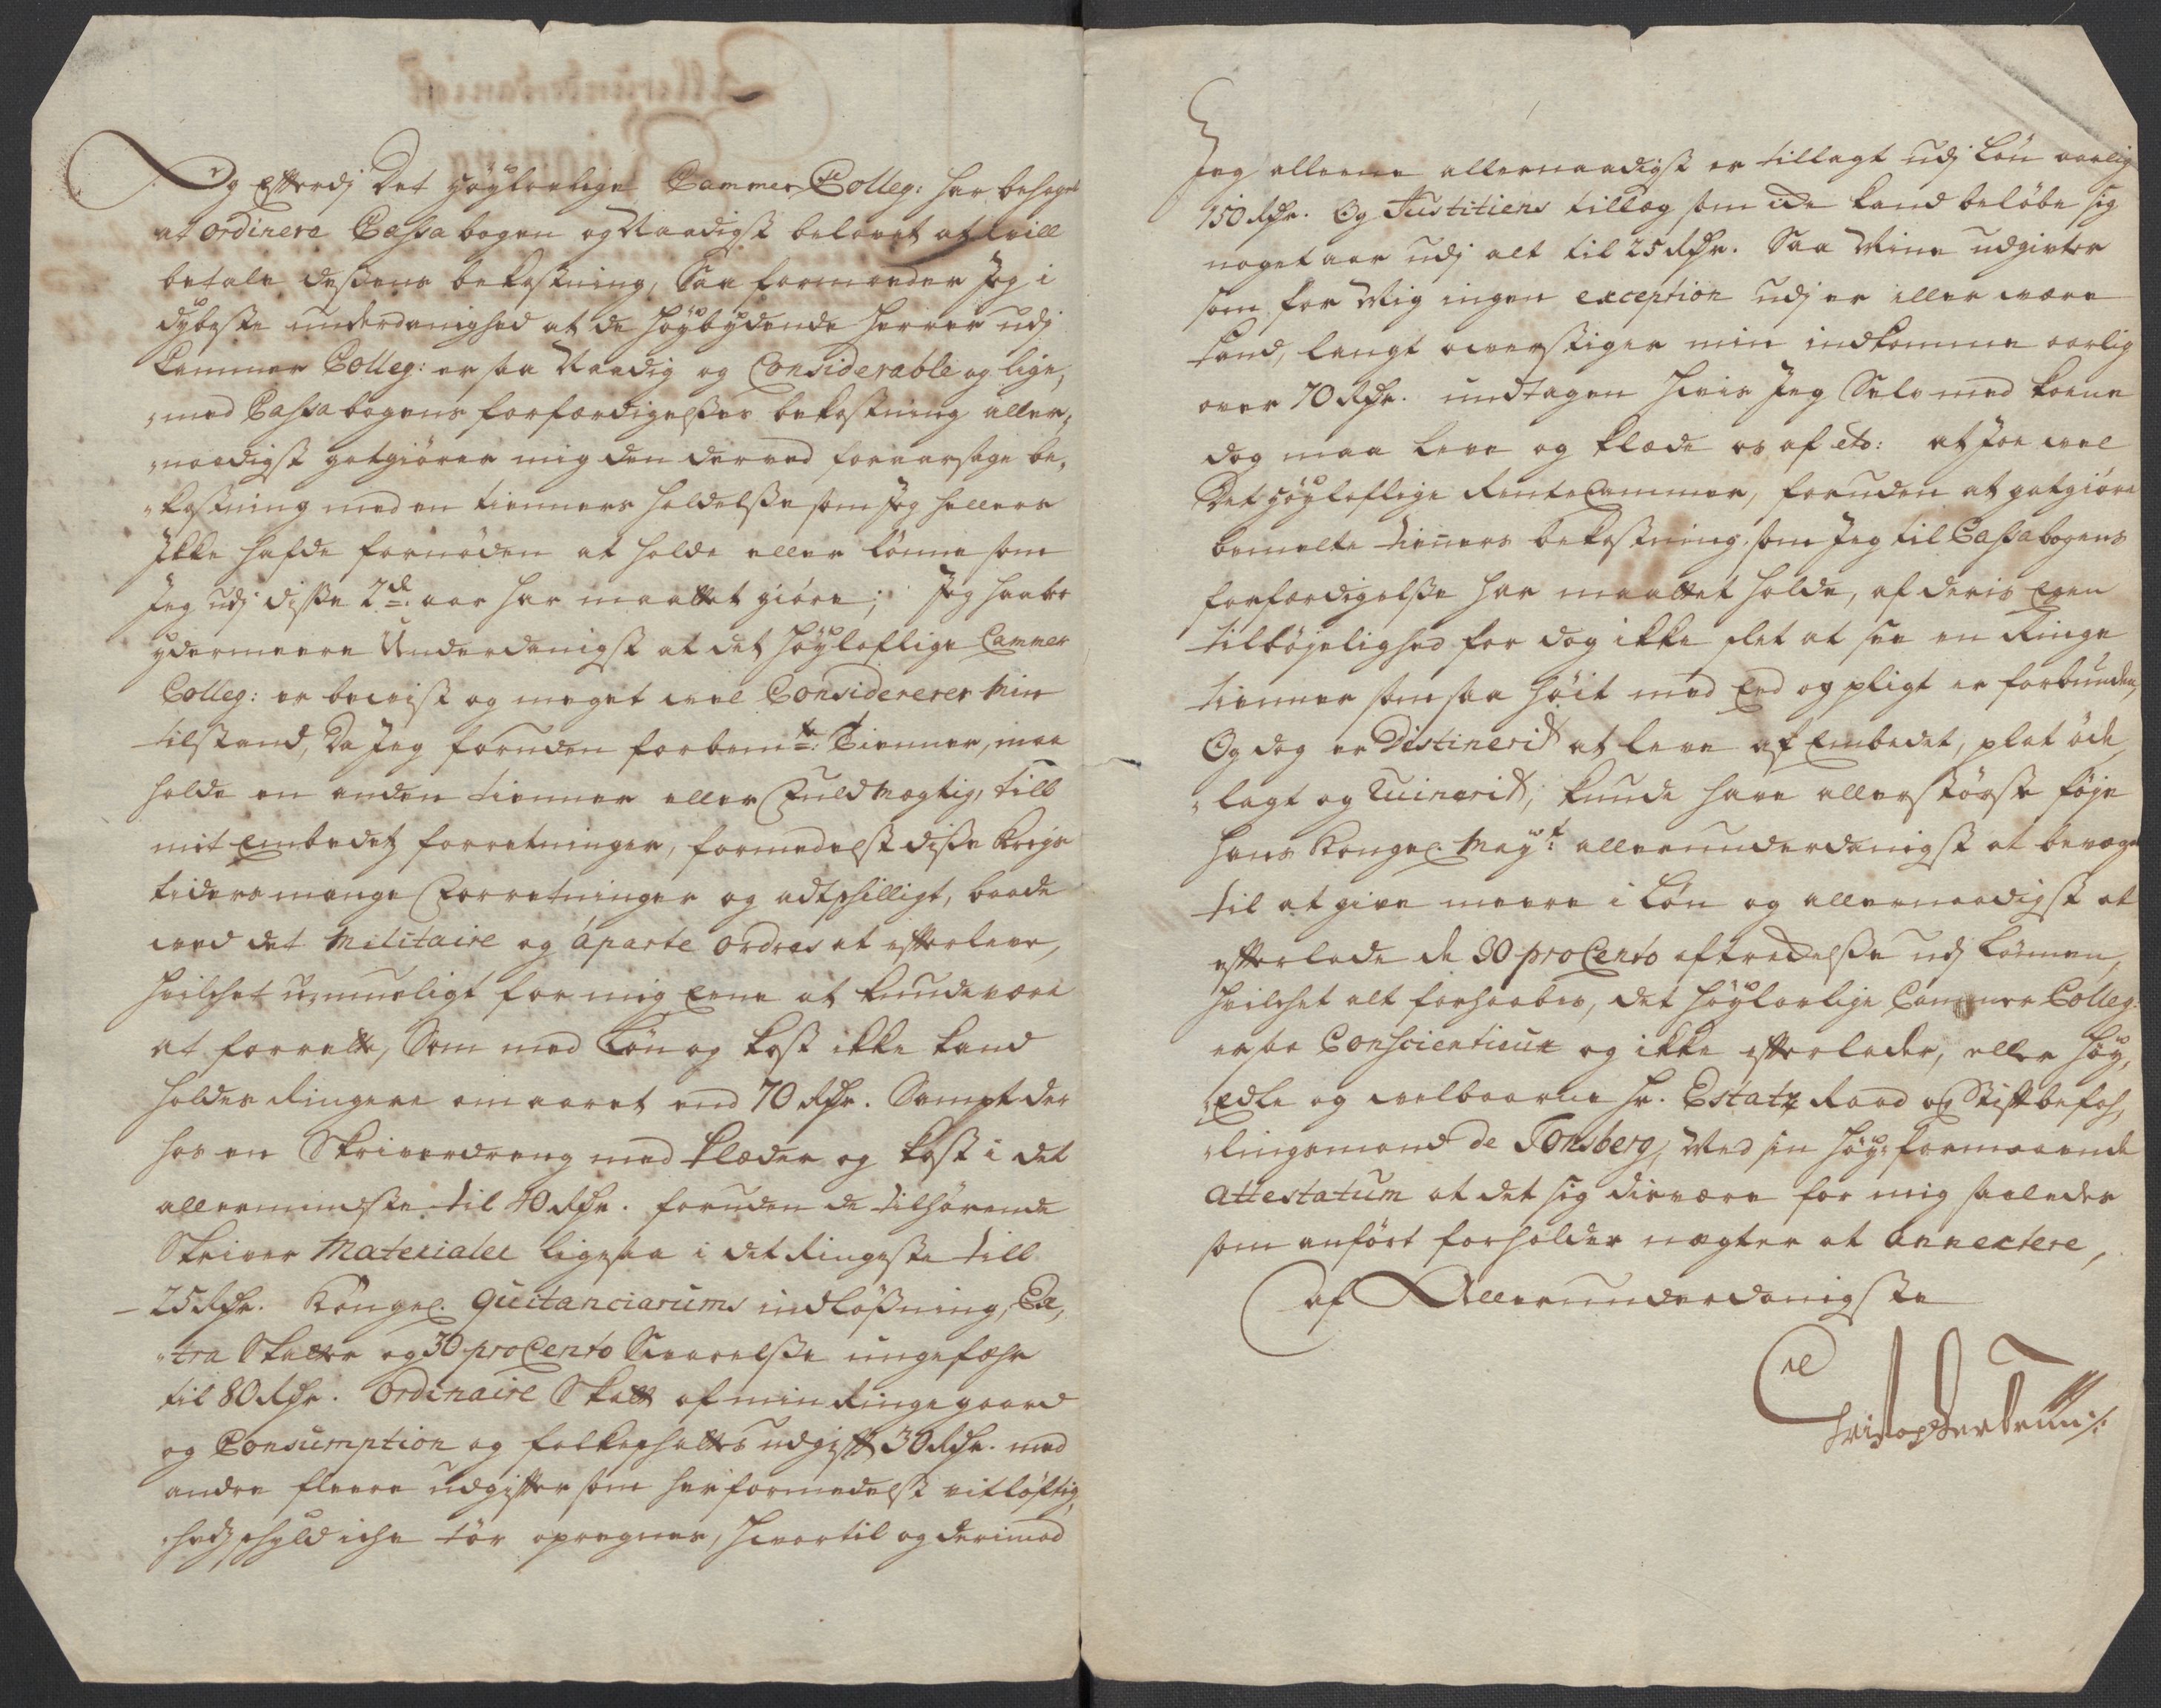 Og Efterdj Det höÿlovlige Cammer Colleg: har behaget
at ordinere Cassa bogen og Naadigst belovet at vill
betale dessens bekostning, Saa formoder Jeg i
dÿbeste underdanighed at de höÿbÿdende Herrer udj
Cammer Colleg: er saa Naadig og Considerable og lige,
„med Cassa bogens forfærdigelsses bekostning aller„
„naadigst gotgiörer mig den derved foraarsage be„
„kostning med en tienners holdelsse som Jeg hellers
Ikke hafde fornöden at holde eller lönne som
Jeg udj disse 2de aar har maattet giöre; Jeg haaber
ÿdermeere Underdanigst at det Höÿloflige Cammer
Colleg: er bevist og meget vel Considererer Min
tilstand, Da Jeg foruden forbemte: Tienner, maa
holde en anden tienner eller Fuldmægtig, till
mit Embedetz forretninger, formedelst disse Krigs
tiders mange Forretninger og adtschilligt, baade
ved det Militaire og áparte ordres at efterleve,
hvilchet u„mueligt for mig Eene at kunde være
at forrette, Som med Lön og kost ikke kand
holdes Ringere om aaret end 70 Rdr. Sampt der
hos en Skriverdreng med klæder og kost i det
allermindste til 40 Rdr. foruden de tilhörende
Skriver Materialer ligesaa i det Ringeste till
25 Rdr. Kongel. Quitanciarums indlößning, Ex„
„tra Skatter og 30 pro Cento Svarelsse ungefæhr
til 80 Rdr. Ordinaire Skatt af min Ringe gaard
og Consumption og folkeskattes udgift 30 Rdr. med
andre fleere udgifter som her formedelst vitlöftig„
„hedz schÿld iche tör opregnes, hvortil og derimod
Jeg alleene allernaadigst er tillagt udj Lön aarlig
150 Rdr. Og Justitiens tillæg som icke kand belöbe sig
noget aar udj alt til 25 Rdr. Saa Mine udgivter
som for Mig ingen exception udj er eller være
kand, langt overstiger min indkomme aarlig
over 70 Rdr. undtagen hvis Jeg Selv med Kone
dog maa leve og klæde os af etc: at Joe vel
Det höÿloflige Rente Cammer, foruden at gotgiöre
bemelte tieners bekostning, som Jeg til Cassa bogens
forfærdigelsse har maattet holde, af deris Egen
tilböjelighed for dog ikke slet at see en Ringe
tienner som saa höit med Eed og pligt er forbunden,
Og dog er Distinerit at leve af Embedet, plat öde„
„lagt og Ruinerit, kunde have allerstörste föje
hans Kongel. Maÿt: allerunderdanigst at bevæge
til at give meere i Lön og allernaadigst at
efterlade de 30 pro Cento aftredelsse udj lönnen,
hvilchet alt forhaabes, det höÿlovlige Cammer Colleg:
er saa Conscientieux og ikke efterlader, eller höÿ„
„Edle og velbaarne Hr. Estatz Raad og Stiftbefah„
„lingsmand de Tonsberg, Med sin höÿformaaende
Attestatum at det sig disvære for mig saaledes
som anfört forholder nægter at annectere,
af Allerunderdanigste